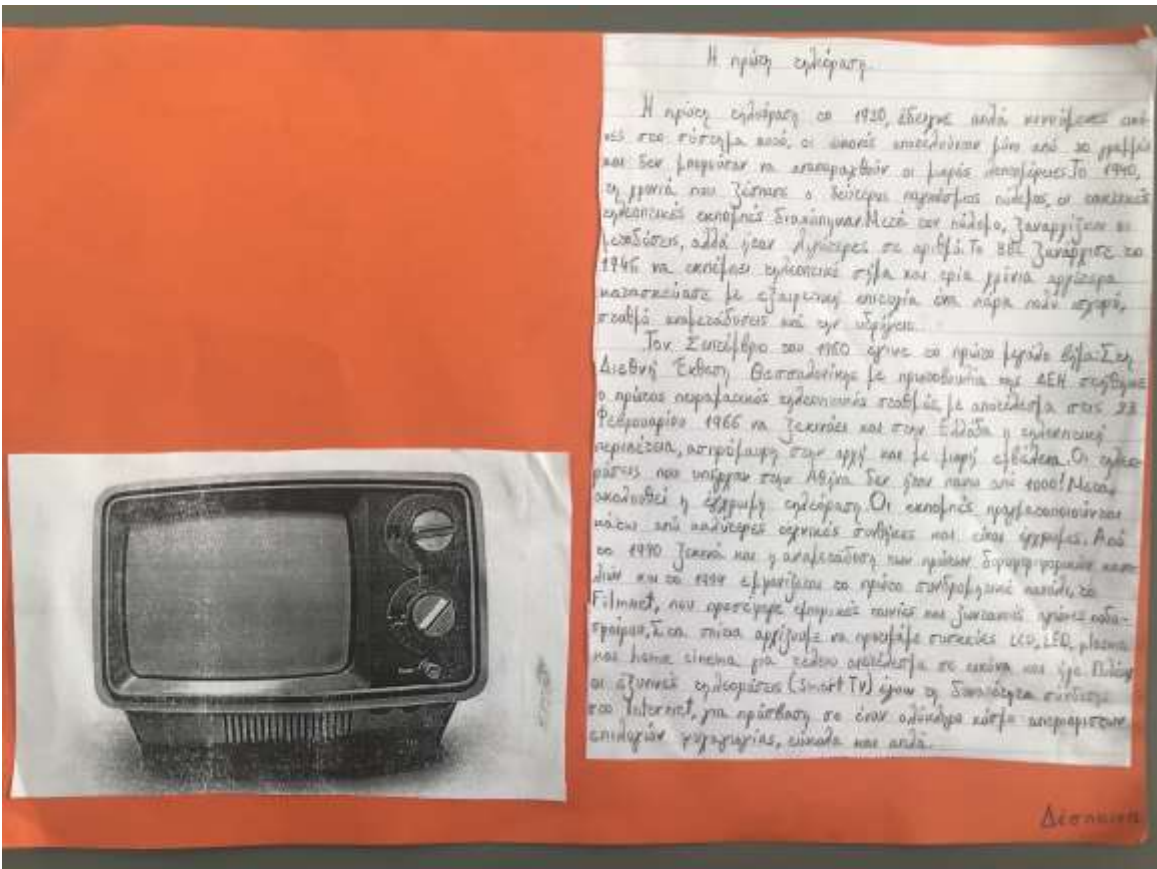 Η πρώτη τηλεόραση
Η πρώτη τηλεόραση το 1920, έδειχνε απλά κινούμενες εικό-
νες στο σύστημα αυτό, οι εικόνες αποτελούνταν μόνο από 30 γραμμές
και δεν μπορούσαν να αναπαραχθούν οι μικρές λεπτομέρειες. Το 1940,
τη χρονιά που ξέσπασε ο δεύτερος παγκόσμιος πόλεμος, οι
τηλεοπτικές εκπομπές διακόπηκαν. Μετά τον πόλεμο, ξαναρχίζουν οι
μεταδόσεις, αλλά ήταν λιγότερες σε αριθμό. Το BBC ξανάρχισε το
1946 να εκπέμπει τηλεοπτικό σήμα και τρία χρόνια αργότερα
κατασκεύασε με εξαιρετική επιτυχία ένα πάρα πολύ ισχυρό,
σταθμό αναμετάδοσεις από την υδρόγειο.
Τον Σεπτέμβριο του 1960 έγινε το πρώτο μεγάλο βήμα: Στη
Διεθνή Έκθεση Θεσσαλονίκης με πρωτοβουλία της ΔΕΗ στήθηκε
ο πρώτος πειραματικός τηλεοπτικός σταθμός, με αποτέλεσμα στις 23
Φεβρουαρίου 1966 να ξεκινάει και στην Ελλάδα η τηλεοπτική
περιπέτεια, ασπρόμαυρη στην αρχή και με μικρή εμβέλεια. Οι τηλεο-
ράσεις που υπήρχαν στην Αθήνα δεν ήταν πάνω από 1000! Μετά,
ακολουθεί η έγχρωμη τηλεόραση. Οι εκπομπές πραγματοποιούνται
κάτω από καλύτερες τεχνικές συνθήκες και είναι έγχρωμες. Από
το 1990 ξεκινά και η αναμετάδοση των πρώτων δορυφορικών κανα-
λιών και το 1994 εμφανίζεται το πρώτο συνδρομητικό κανάλι, το
Filmnet, που προσέφερε κινηματογραφικές ταινίες και ζωντανούς αγώνες ποδο-
σφαίρου. Στα σπίτια αρχίζουμε να προσθέτουμε συσκευές LCD, LED, plasma
και home cinema για τέλειο αποτέλεσμα σε εικόνα και ήχο. Πλέον
οι έξυπνες τηλεοράσεις (smart TV) έχουν τη δυνατότητα σύνδεσης
στο Internet, για πρόσβαση σε έναν ολόκληρο κόσμο απεριόριστων
επιλογών ψυχαγωγίας, εύκολα και απλά.
Δέσποινα